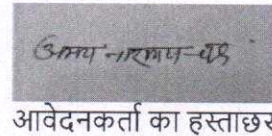 अभय नारायण
आवेदनकर्ता का हस्ताछर